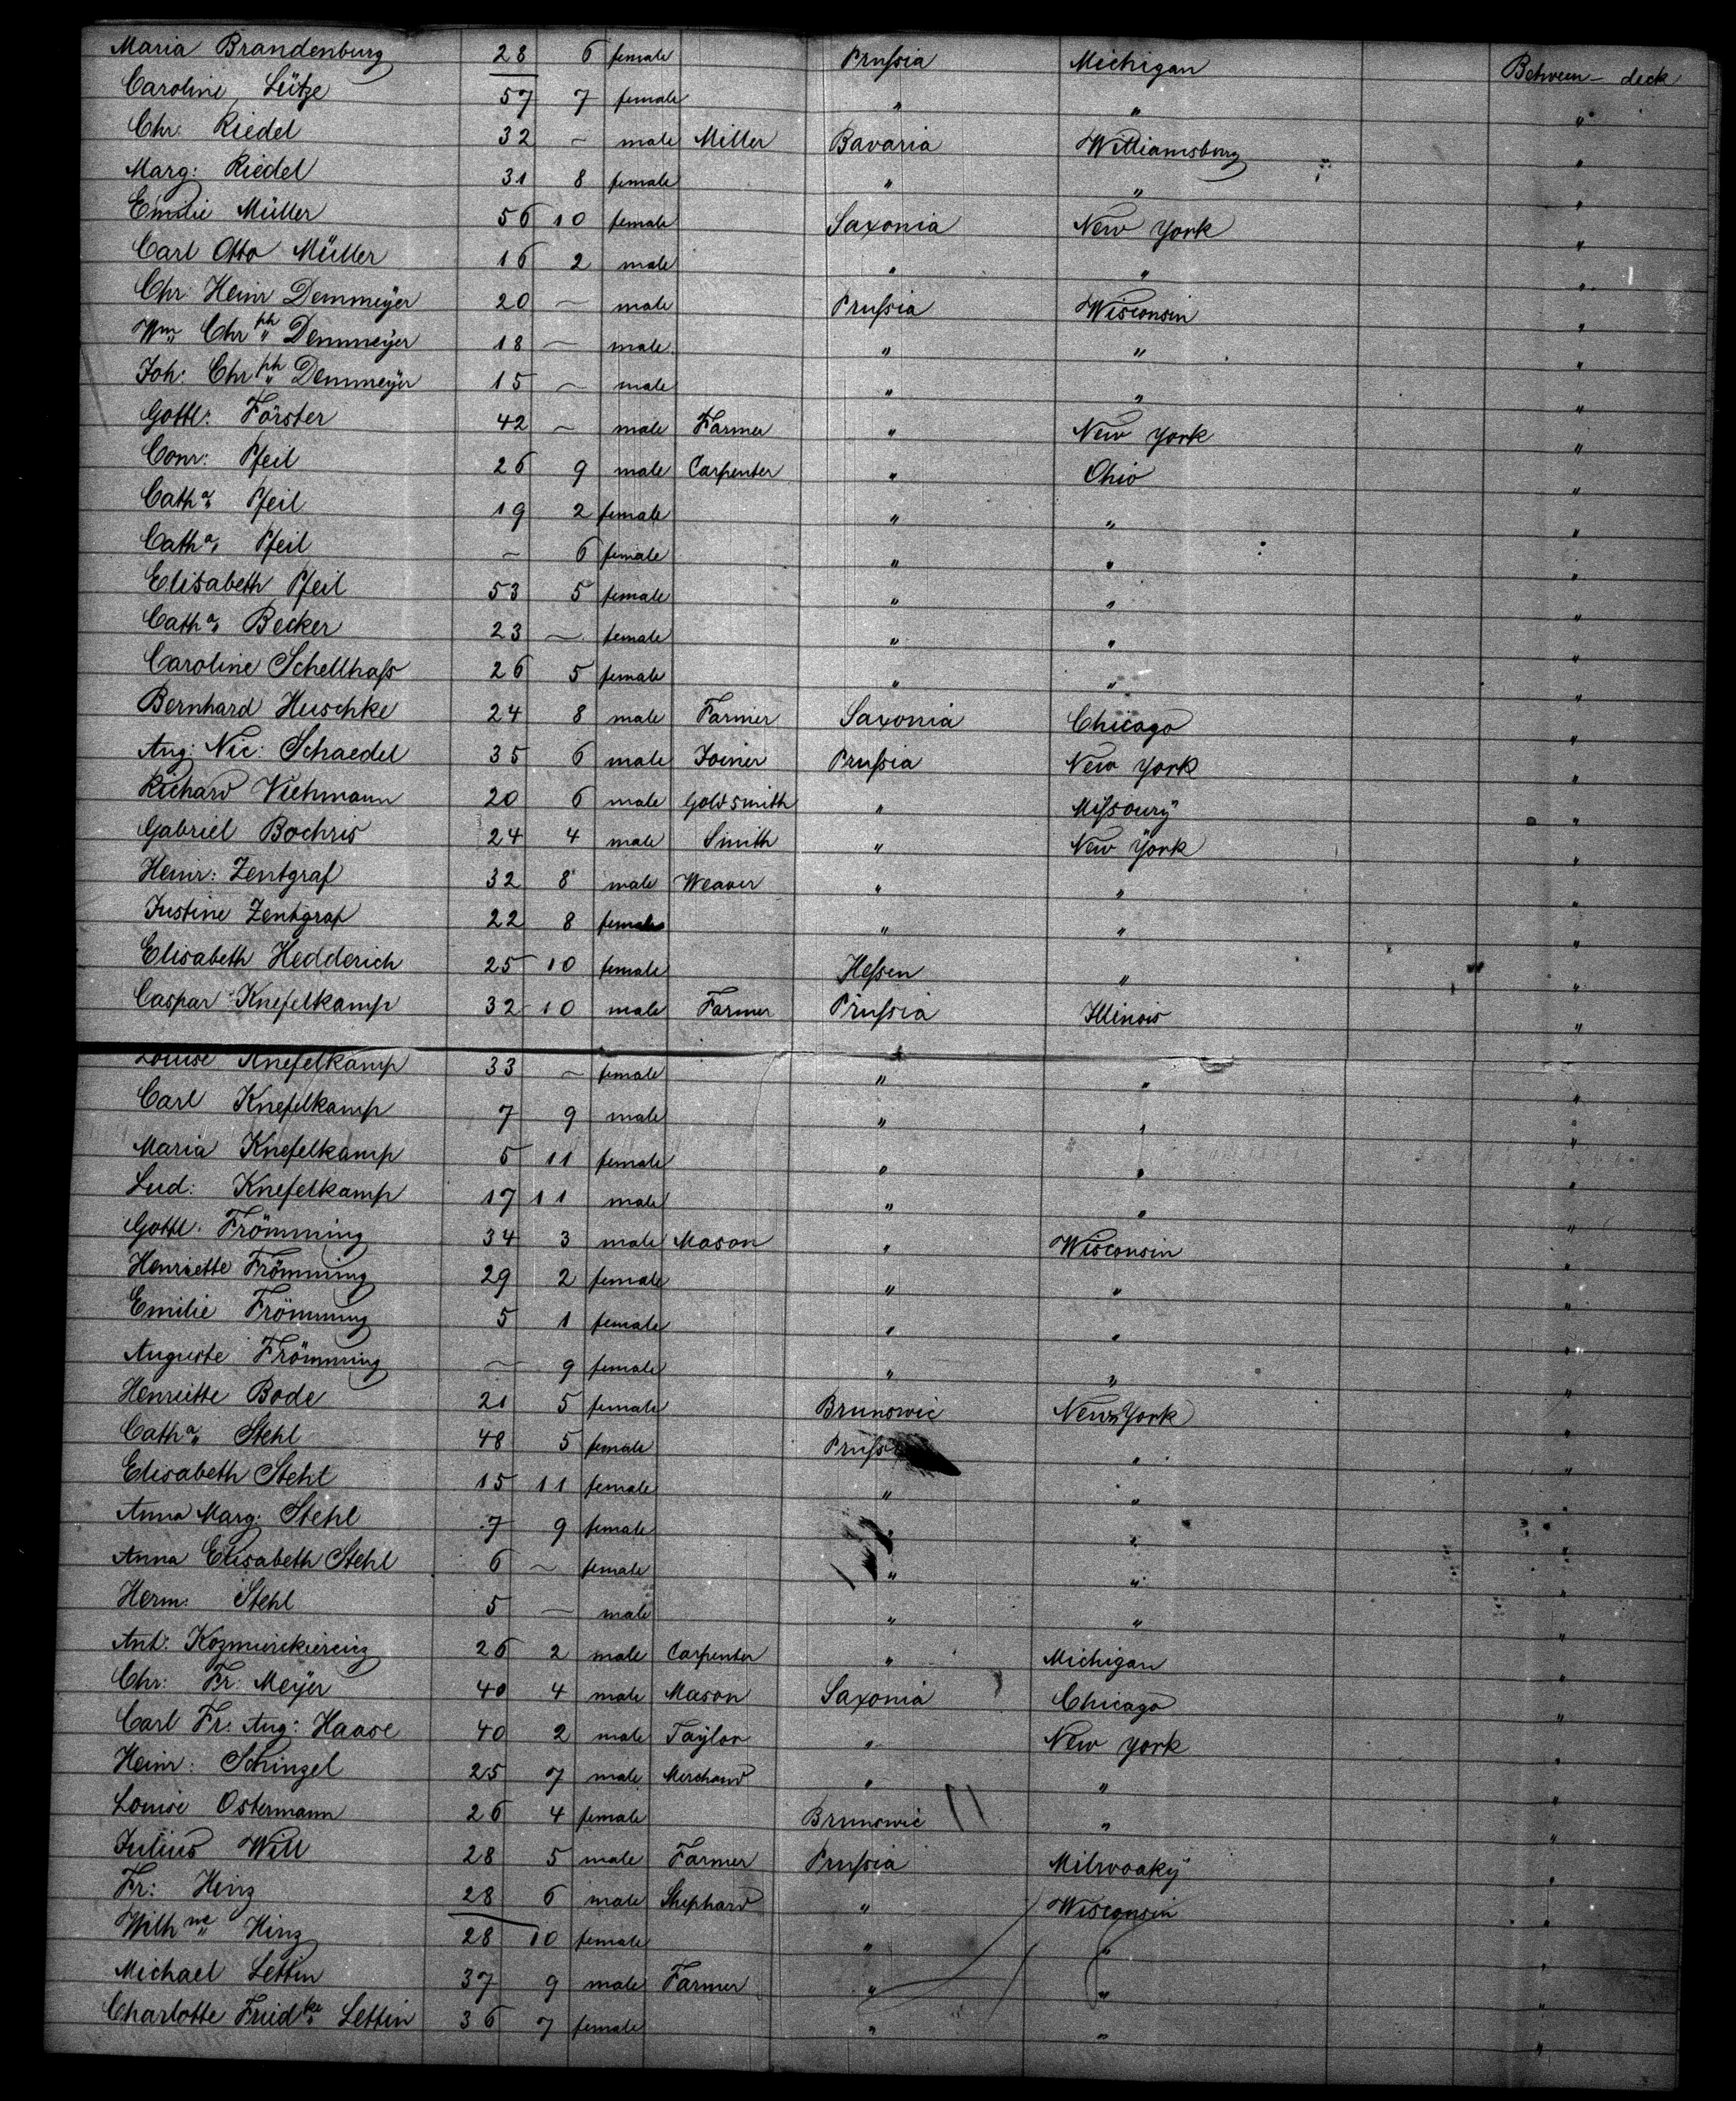 Maria Brandenburg 28 6 female Prußia Michigan Between-deck
Caroline Lütze 57 7 female " " "
Chr: Riedel 32 – male Miller Bavaria Williamsburg "
Marg: Riedel 31 8 female " " "
Emilie Müller 56 10 female Saxonia New York "
Carl Otto Müller 16 2 male " " "
Chr: Heinr Demmeÿer 20 – male Prußia Wisconsin "
Wm Chrph Demmeÿer 18 – male " " "
Joh: Chrph Demmeÿer 15 – male " " "
Gottl: Förster 42 – male Farmer " New York "
Conr: Pfeil 26 9 male Carpenter " Ohio "
Catha Pfeil 19 2 female " " "
Catha Pfeil – 6 female " " "
Elisabeth Pfeil 53 5 female " " "
Catha Becker 23 – female " " "
Caroline Schellhaß 26 5 female " " "
Bernhard Huschke 24 8 male Farmer Saxonia Chicago "
Aug: Nic: Schaedel 35 6 male Joiner Prußia New York "
Richard Viehmann 20 6 male Goldsmith " Mißourÿ "
Gabriel Bochris 24 4 male Smith " New York "
Heinr: Zentgraf 32 8 male Weaver " " "
Justine Zentgraf 22 8 female " " "
Elisabeth Hedderich 25 10 female Heßen " "
Caspar Knefelkamp 32 10 male Farmer Prußia Illinois "
Louise Knefelkamp 33 – female " " "
Carl Knefelkamp 7 9 male " " "
Maria Knefelkamp 5 11 female " " "
Lud: Knefelkamp 17 11 male " " "
Gottl: Frömming 34 3 male Mason " Wisconsin "
Henriette Frömming 29 2 female " " "
Emilie Frömming 5 1 female " " "
Auguste Frömming – 9 female " " "
Henriette Bode 21 5 female Brunswic New York "
Catha Stehl 48 5 female Prußia " "
Elisabeth Stehl 15 11 female " " "
Anna Marg: Stehl 7 9 female " " "
Anna Elisabeth Stehl 6 – female " " "
Herm: Stehl 5 – male " " "
Ant: 26 2 male Carpenter " Michigan "
Chr: Fr: Meÿer 40 4 male Mason Saxonia Chicago "
Carl Fr: Aug: Haase 40 2 male Taÿlor " New York "
Heinr: Schinzel 25 7 male Merchand " " "
Louise Ostermann 26 4 female Brunswic " "
Julius Will 28 5 male Farmer Prußia Milwoakÿ "
Fr: Hinz 28 6 male Shephard " Wisconsin "
Wilhne Hinz 28 10 female " " "
Michael Lettin 37 9 male Farmer " " "
Charlotte Friedke Lettin 36 7 female " " "